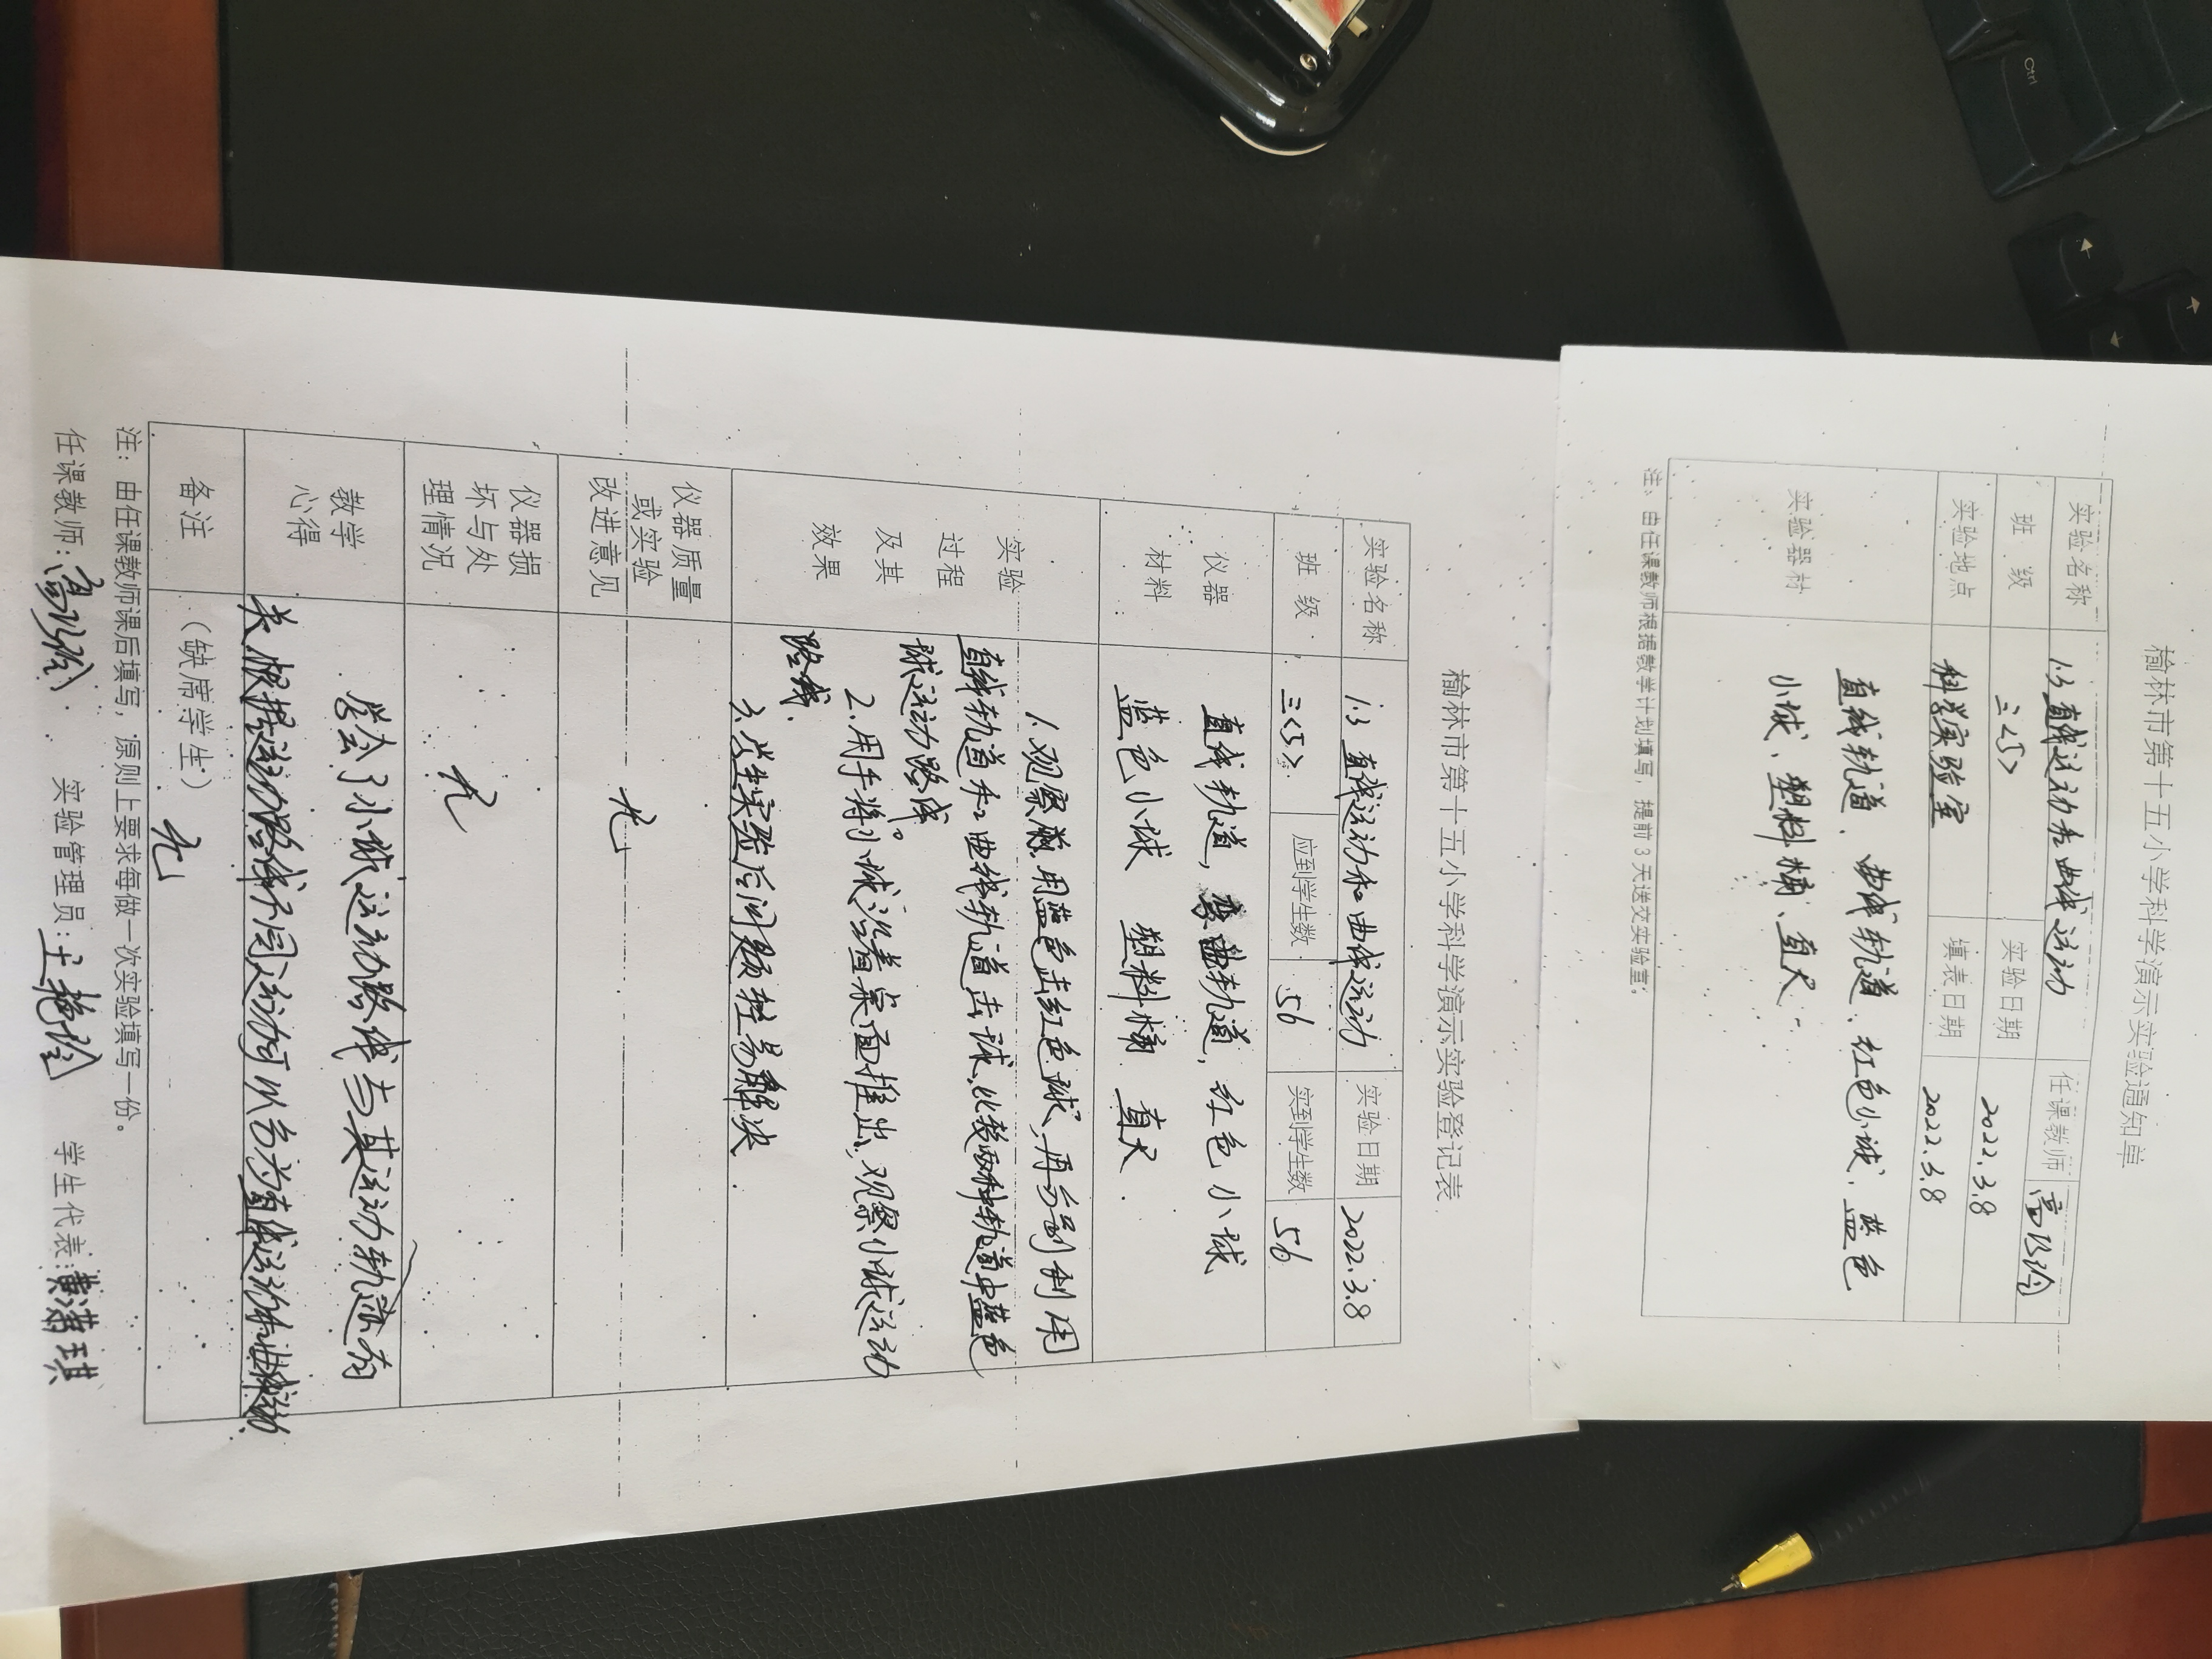 榆林市第十五小学科学演示实验通知单
实验名称 1.3 直线运动和曲线运动 任课教师
班 级 三<5> 实验日期 2022.3.8
实验地点 科学实验室 填表日期 2022.3.8
实验器材 直线轨道、曲线轨道、红色小球、蓝色
小球、塑料桶、直尺
注:由任课教师根据教学计划填写,提前3天送交实验室。
榆林市第十五小学科学演示实验登记表
实验名称 1.3 直线运动和曲线运动 实验日期 2022.3.8
班 级 三<5> 应到学生数 56 实到学生数 56
仪器
材料
直线轨道,曲轨道,红色小球
蓝色小球 塑料桶 直尺.
实验
过程
及其
效果
1.观察前,用蓝色击红色球,再分别利用
直线轨道和曲线轨道击球,比较两种轨道中蓝色
球运动路线。
2.用手将小球沿着桌面推出,观察小球运动
路线.
3.学生实验后问题轻易解决.
仪器质量
或实验
改进意见
无
仪器损
坏与处
理情况
无
教学
心得
学会了小球运动路线与其运动轨迹有
关,根据运动路线不同运动可以分为直线运动和曲线运动.
备注 (缺席学生) 无
注:由任课教师课后填写,原则上要求每做一次实验填写一份。
任课教师: 实验管理员:王艳玲 学生代表:琪
Ctrl